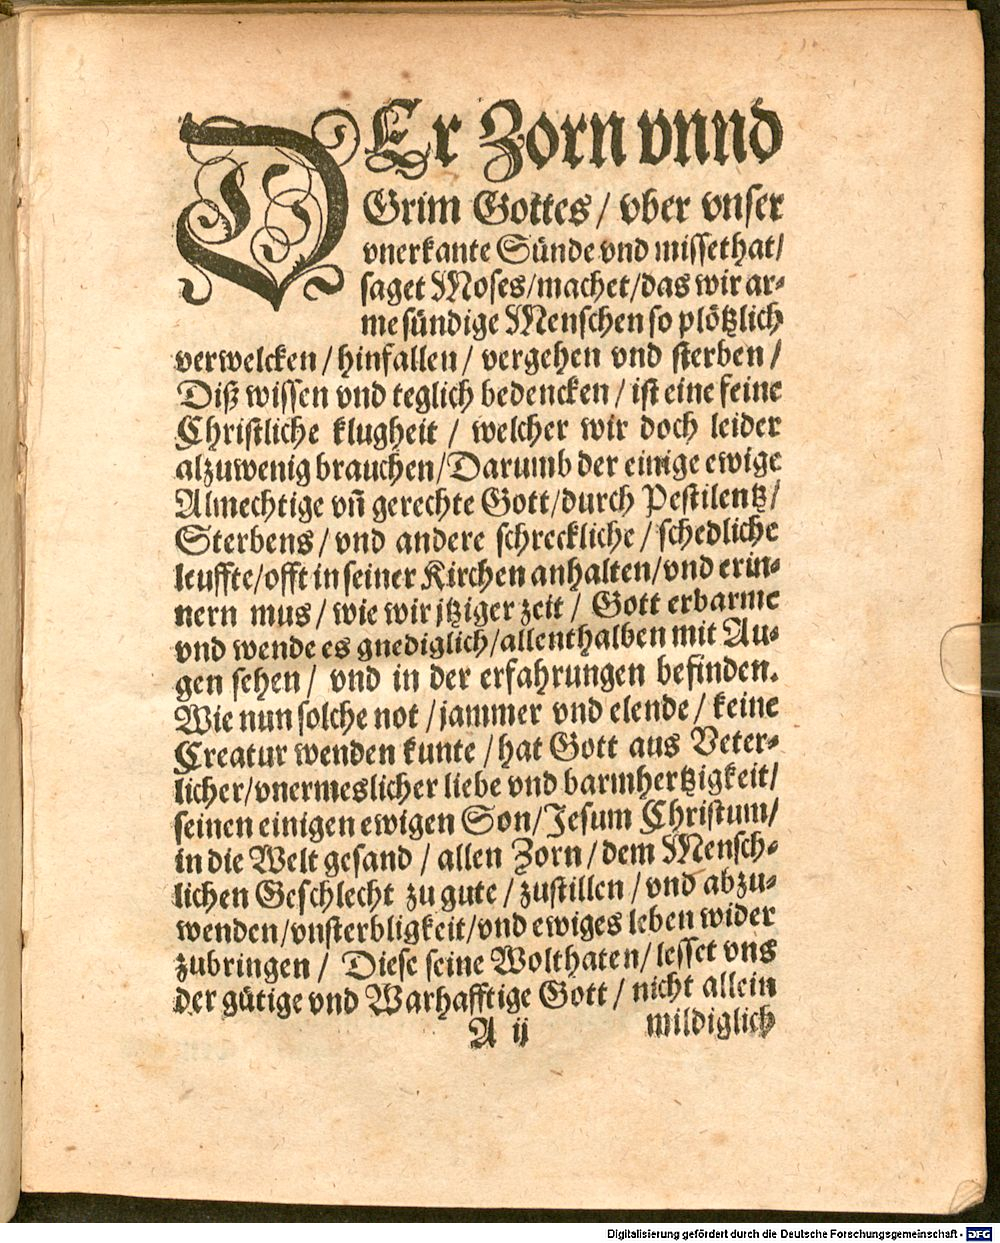 DEr Zorn vnnd
Grim Gottes / vber vnser
vnerkante Sünde vnd missethat/
saget Moses/machet/das wir ar-
me sündige Menschen so plötzlich
verwelcken / hinfallen / vergehen vnd sterben /
Diß wissen vnd teglich bedencken / ist eine feine
Christliche klugheit / welcher wir doch leider
alzuwenig brauchen/Darumb der einige ewige
Almechtige vñ gerechte Gott/durch Pestilentz/
Sterbens/vnd andere schreckliche/schedliche
leuffte/offt in seiner Kirchen anhalten/vnd erin-
nern mus / wie wir jtziger zeit / Gott erbarme
vnd wende es gnediglich/allenthalben mit Au-
gen sehen / vnd in der erfahrungen befinden.
Wie nun solche not /jammer vnd elende/ keine
Creatur wenden kunte /hat Gott aus Veter-
licher/vnermeslicher liebe vnd barmhertzigkeit/
seinen einigen ewigen Son/Jesum Christum/
in die Welt gesand / allen Zorn / dem Mensch-
lichen Geschlecht zu gute / zustillen / vnd abzu-
wenden/vnsterbligkeit/vnd ewiges leben wider
zubringen / Diese seine Wolthaten/ lesset vns
der gütige vnd Warhafftige Gott / nicht allein
A ij mildiglich
Digitalisierung gefördert durch die Deutsche Forschungsgemeinschaft - DFG